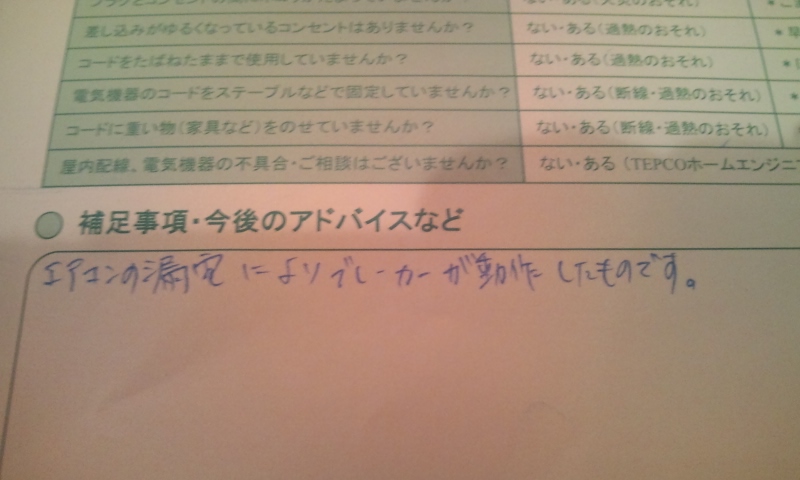 差し込みがゆるくなっているコンセントはありませんか？ ない・ある（過熱のおそれ）
コードをたばねたままで使用していませんか？ ない・ある（過熱のおそれ）
電気機器のコードをステープルなどで固定していませんか？ ない・ある（断線・過熱のおそれ）
コードに重い物（家具など）をのせていませんか？ ない・ある（断線・過熱のおそれ）
屋内配線、電気機器の不具合・ご相談はございませんか？ ない・ある（TEPCOホームエンジニ
補足事項・今後のアドバイスなど
エアコンの漏電によりブレーカーが動作したものです。